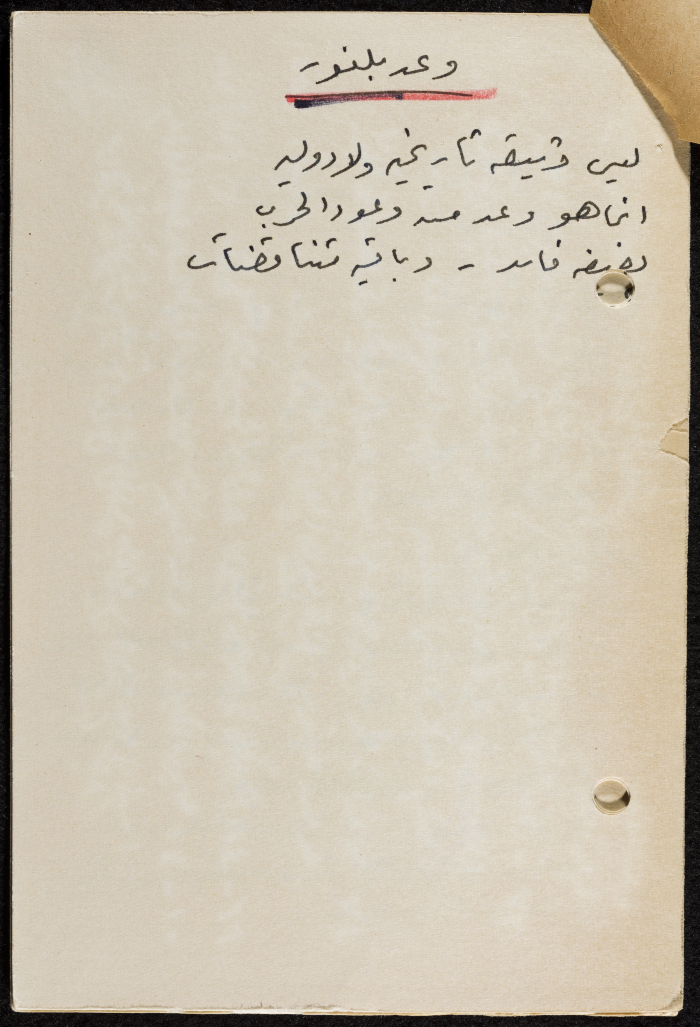 وعد بلفور
ليس وثيقه تاريخيه ولا دوليه
انما هو وعد من وعود الحرب
فاسد - وباقيه متناقضات